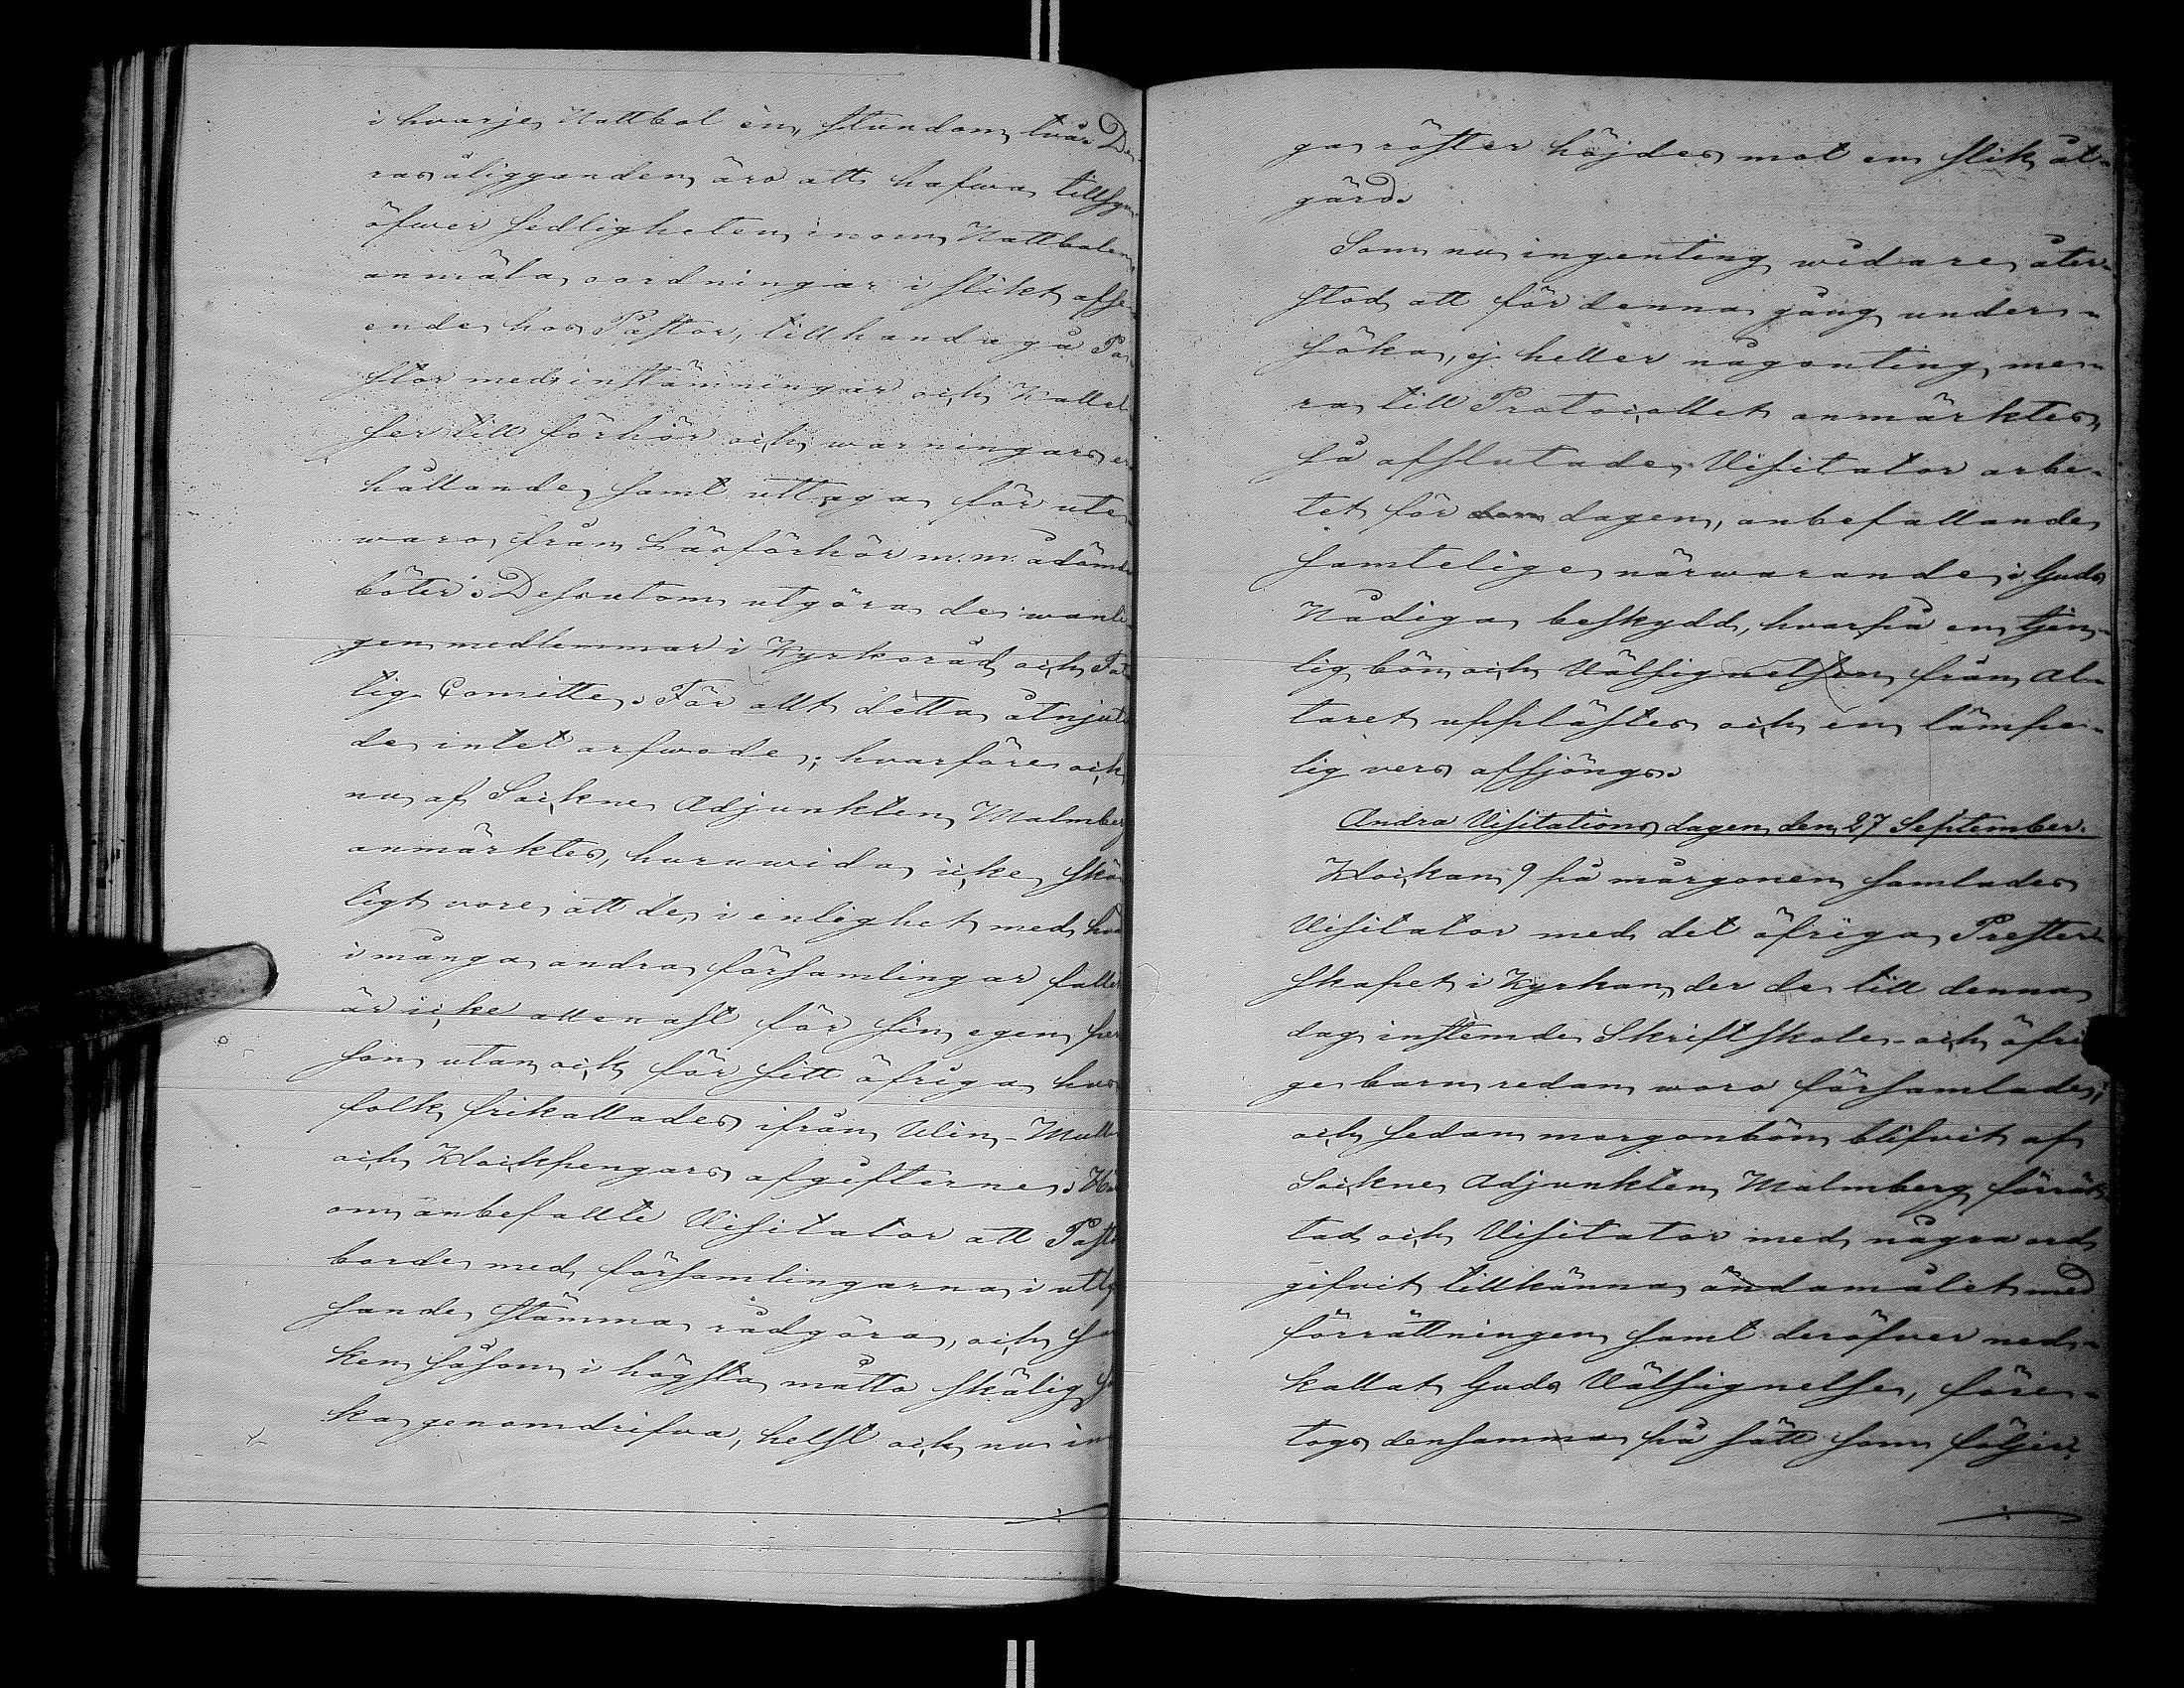 i hvarje Nattbol en, stundom, tvår De-
ras åligganden äro att hafwa tillsyn
öfwer sedligheten inom Nattbolen
anmäla oordningar i slikt afse-
ende hos Pastor, tillhandagå Pa-
stor med instämningar och Kallel-
ser till förhör och warningars er-
hållande samt uttaga för ute-
waro från Läsförhör m.m. ådömde
böter. Dessutom utgöra de wanli-
gen medlemmar i Kyrkoråd och Fat-
tig Comitte. För allt detta åtnjuta
de intet arfwode; hvarföre ock
nu af Sockne Adjunkten Malmberg
anmärktes, huruwida icke skä-
ligt vore, att de i enlighet med hvad
i många andra församlingar fallet
är icke allenast för sin egen per-
son utan ock för sitt öfriga hus-
folk frikallades ifrån Win- Mull-
och Klockpengars afgifterne.
om anbefallte Visitator att Pastor
borde med församlingarna i
sande stämma rådgöra, och
ken såsom i högsta måtto skälig
ka genomdrifva, helst och nu in-
ga röster höjdes mot en slik åt-
gärd.
Som nu ingenting widare åter-
stod att för denna gång under-
söka, ej heller någonting me-
ra till Protocollet anmärktes,
så afslutade Visitator arbe-
tet för dagen, anbefallande
samtelige närwarande i Guds
Nådiga beskydd, hvarpå en tjen-
lig bön och Välsignelsen från Al-
taret upplästes och en lämpe-
lig vers afsjöngs.
Andra Visitations dagen den 27 September.
Klockan 9 på morgonen samlades
Visitator med det öfriga Prester-
skapet i Kyrkan, der de till denna
dag instemde Skriftskole- och öfri-
ge barn redan woro församlade;
och sedan morgonbön blifvit af
Sockne Adjunkten Malmberg förrät-
tad och Visitator med några ord
gifvit tillkänna ändamålet med
förrättningen samt deröfver ned-
kallat Guds Välsignelse, före-
togs densamma på sätt som följer: